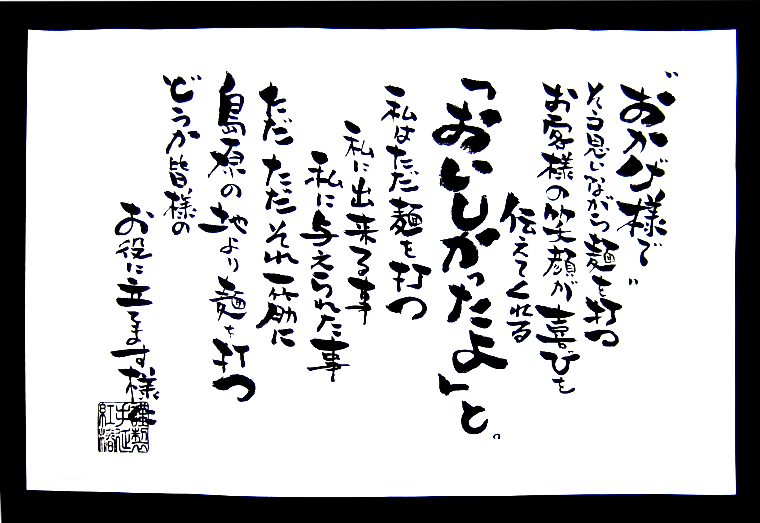 "おかげ様で"
そう思いながら麺を打つ
お客様の笑顔が喜びを
伝えてくれる
「おいしかったよ」と。
私はただ麺を打つ
私に出来る事
私に与えられた事
ただ ただ それ一筋に
島原の地より麺を打つ
どうか皆様の
お役に立てます様に
謹製
手延